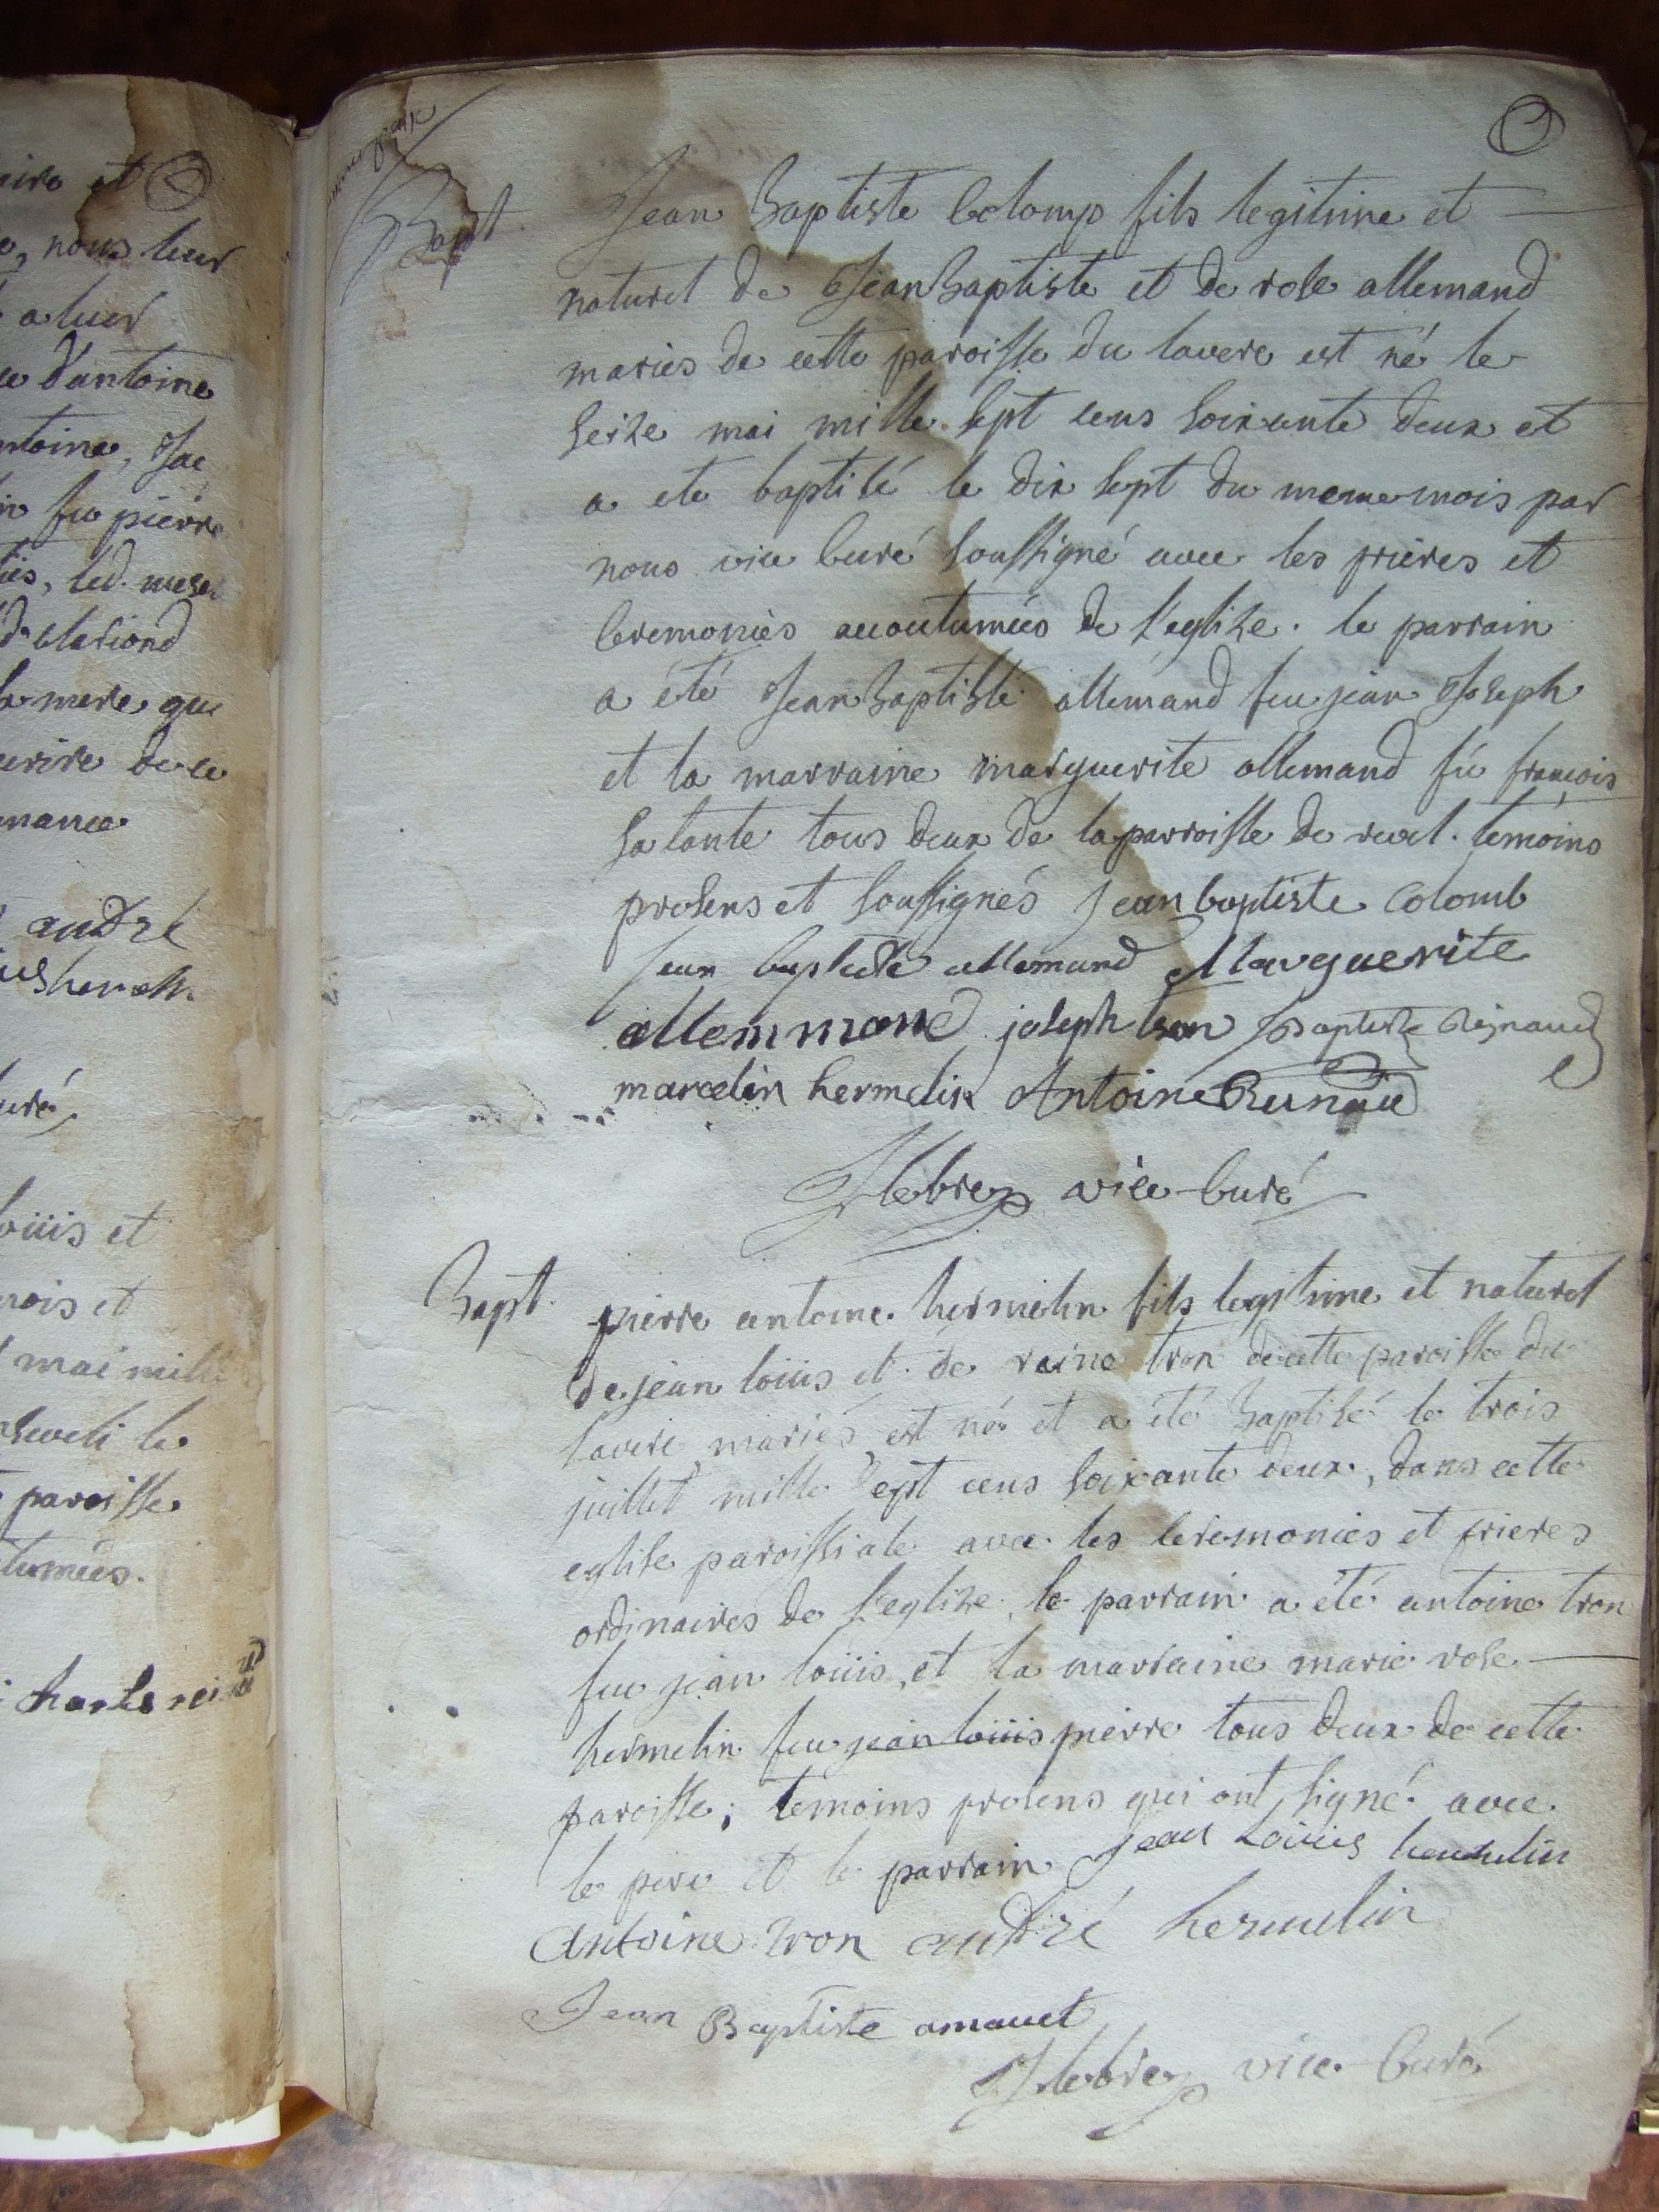 aire et
e, nous leur
a leur
d'antoine
antoine, Jac
fu pierre
led.
la mere qui
ecrire de ce
andré
curé
loüis et
mois et
mai mille
enseveli le
paroisse
tumées.
Bapt.
Jean Baptiste Colomp fils legitime et
naturel de Jean Baptiste et de rose allemand
mariés de cette paroisse du lavere est né le
seize mai mille sept cens soixante deux et
a ete baptisé le dix sept du meme mois par
nous vice Curé soussigné avec les prieres et
Ceremonies accoutumées de l'eglize. le parrain
a été Jean Baptiste allemand feu jean Joseph
et la marraine marguerite allemand fû francois
sa tante tous deux de la parroisse de revel. temoins
presens et soussignés jean baptiste Colomb
jean baptiste allemand Marguerite
allemmand joseph tron Baptiste Reynaud
marcelin hermelin Antoine Reinaud
vice-Curé
Bapt.
pierre antoine hermelin fils legitime et naturel
de jean loüis et de reine tron de cette paroisse du
lavere, mariés, est né et a été Baptisé le trois
juillet mille sept cens soixante deux, dans cette
eglise paroissiale avec les Ceremonies et prieres
ordinaires de l'eglize. le parrain a été antoine tron
feu jean loüis, et la marraine marie rose
hermelin feu jean loüis pierre tous deux de cette
paroisse; temoins presens qui ont signé avec
le pere et le parrain jean Loüis hermelin
Antoine tron andré hermelin
Jean Baptiste amavet
vice-Curé